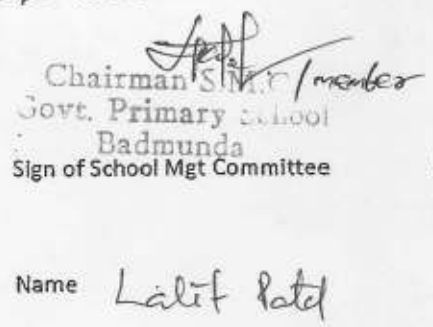 Chairman S.M.C / member
Govt. Primary School
Badmunda
Sign of School Mgt Committee
Name Lalit Patel